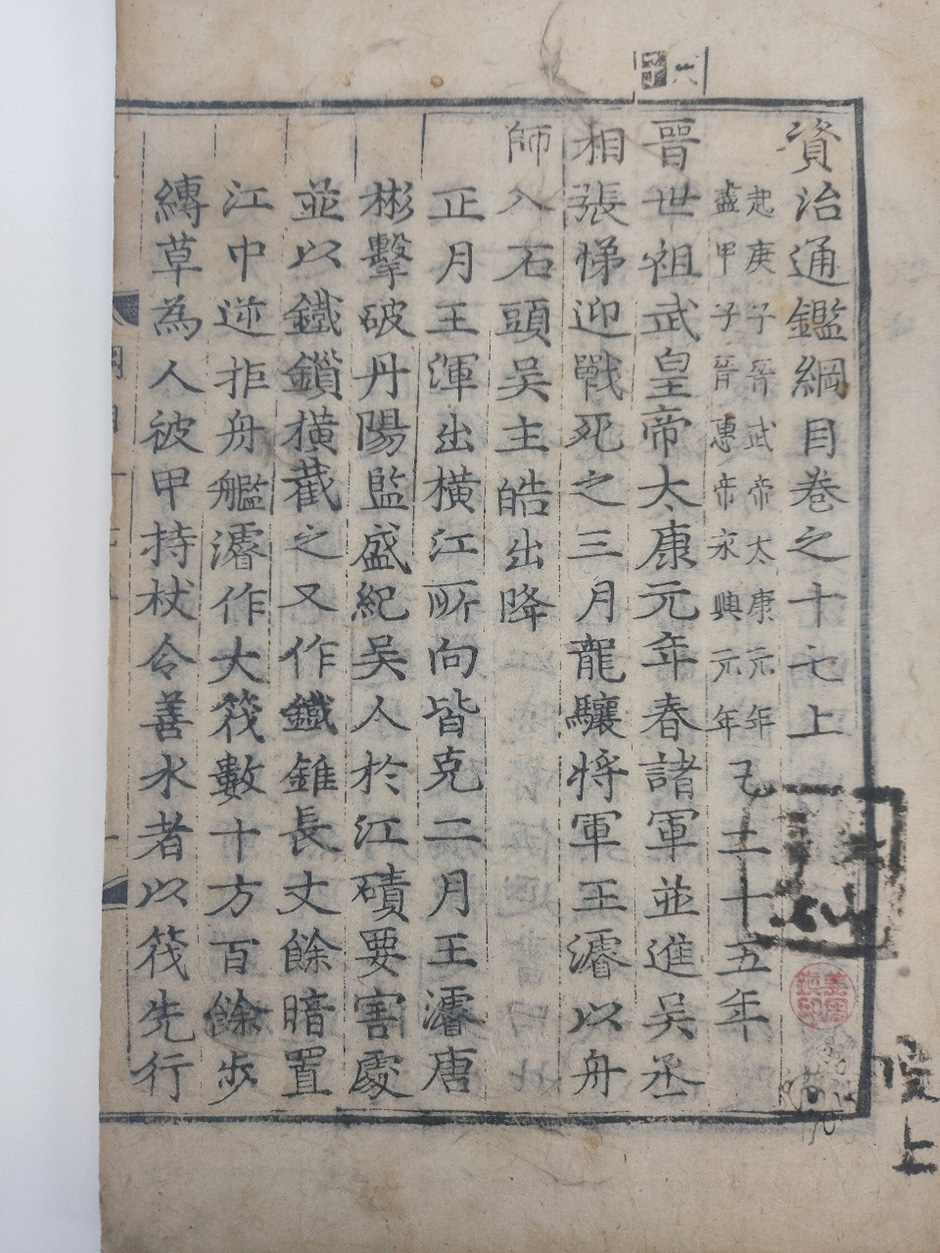 資治通鑑綱目卷之十七上
起庚子晉武帝太康元年
盡甲子晉惠帝永興元年 凡二十五年
晉世祖武皇帝太康元年春諸軍並進吳丞
相張悌迎戰死之三月龍驤將軍王濬以舟
師入石頭吳主皓出降
正月王渾出橫江所向皆克二月王濬唐
彬擊破丹陽監盛紀吳人於江磧要害處
並以鐵鎖橫截之又作鐵錐長丈餘暗置
江中逆拒舟艦濬作大筏數十方百餘步
縛草為人被甲持杖令善水者以筏先行